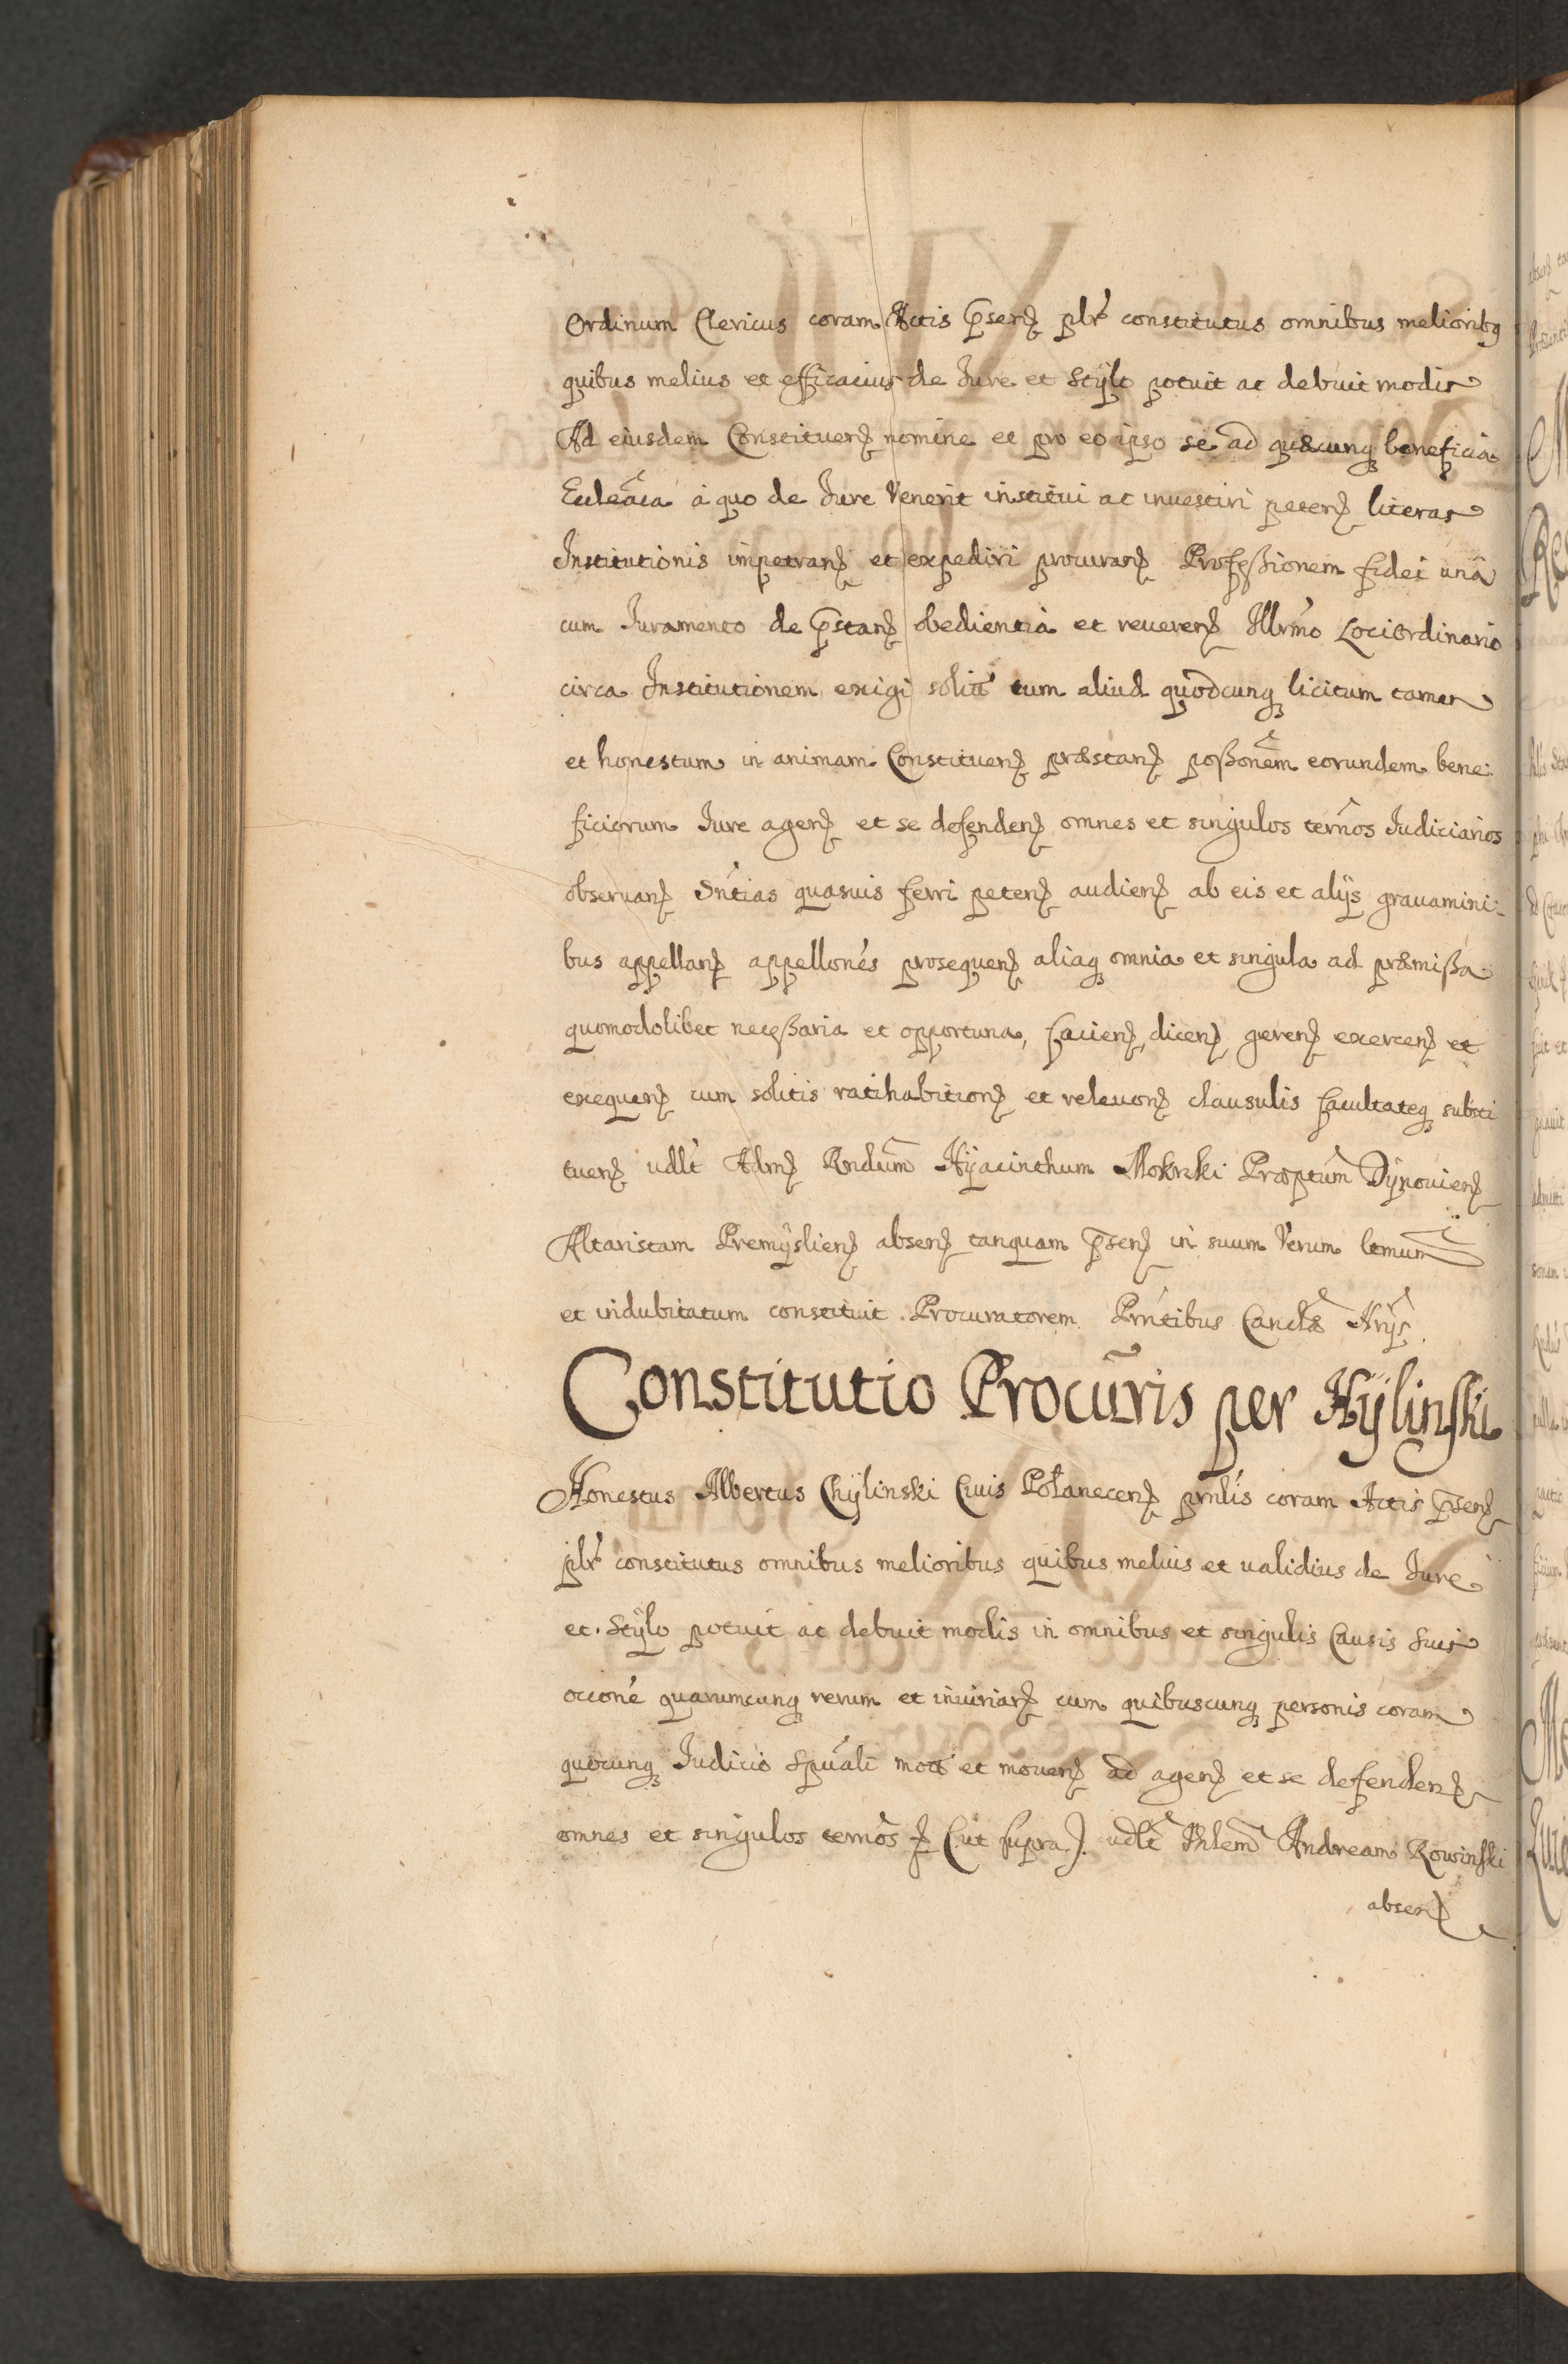 Ordinum Clericus coram Actis p̃senꝫ plr̃ constitutus omnibus melioribꝫ
quibus melius et efficacius de Jure et Stÿlo potuit ac debuit modis
Ad eiusdem Constituenꝫ nomine et pro eo ipso se ad quæcunqꝫ beneficia
Eccleãca à quo de Jure Venerit institui ac inuestiri petenꝫ literas
Institutionis impetranꝫ et expediri procuranꝫ Profeßionem fidei unâ
cum Juramento de p̃stanꝫ obedientiâ et reuerenꝫ Illrmo Loci Ordinario
circa Institutionem exigi solitt tum aliud quodcunqꝫ licitum tamen
et honestum in animam Constituenꝫ præstanꝫ poßonẽm eorundem bene:
ficiorum Jure agenꝫ et se defendenꝫ omnes et singulos termos Judiciarios
obseruanꝫ Sntias quasuis ferri petenꝫ audienꝫ ab eis et alijs grauamini:
bus appellanꝫ appellonés prosequenꝫ aliaqꝫ omnia et singula ad præmißa
quomodolibet neceßaria et opportuna, facienꝫ, dicenꝫ, gerenꝫ exercenꝫ et
exequenꝫ cum solitis ratihabitionꝫ et releuonꝫ clausulis facultateqꝫ substi
tuenꝫ udlt Admꝫ Rndum Hÿacinthum Mokrski Præptum Dÿnouienꝫ
Altaristam Premÿslienꝫ absenꝫ tanquam p̃senꝫ in suum Verum ltmum
et indubitatum constituit Procuratorem Prntibus Canclæ Nrijs.
Constitutio Procuris per Hÿlinski
Honestus Albertus Chÿlinski Ciuis Połanecenꝫ prnlis coram Actis p̃senꝫ
plr̃ constitutus omnibus melioribus quibus melius et ualidius de Jure
et Stÿlo potuit ac debuit modis in omnibus et singulis Causis Suis
occoné quarumcunqꝫ rerum et iniuriarꝫ cum quibuscunqꝫ personis coram
quocunqꝫ Judicio Spuali mott et mouenꝫ ad agenꝫ et se defendenꝫ
omnes et singulos termos ꝫ (ut supra). udlt Andream Rowinski
absenꝫ